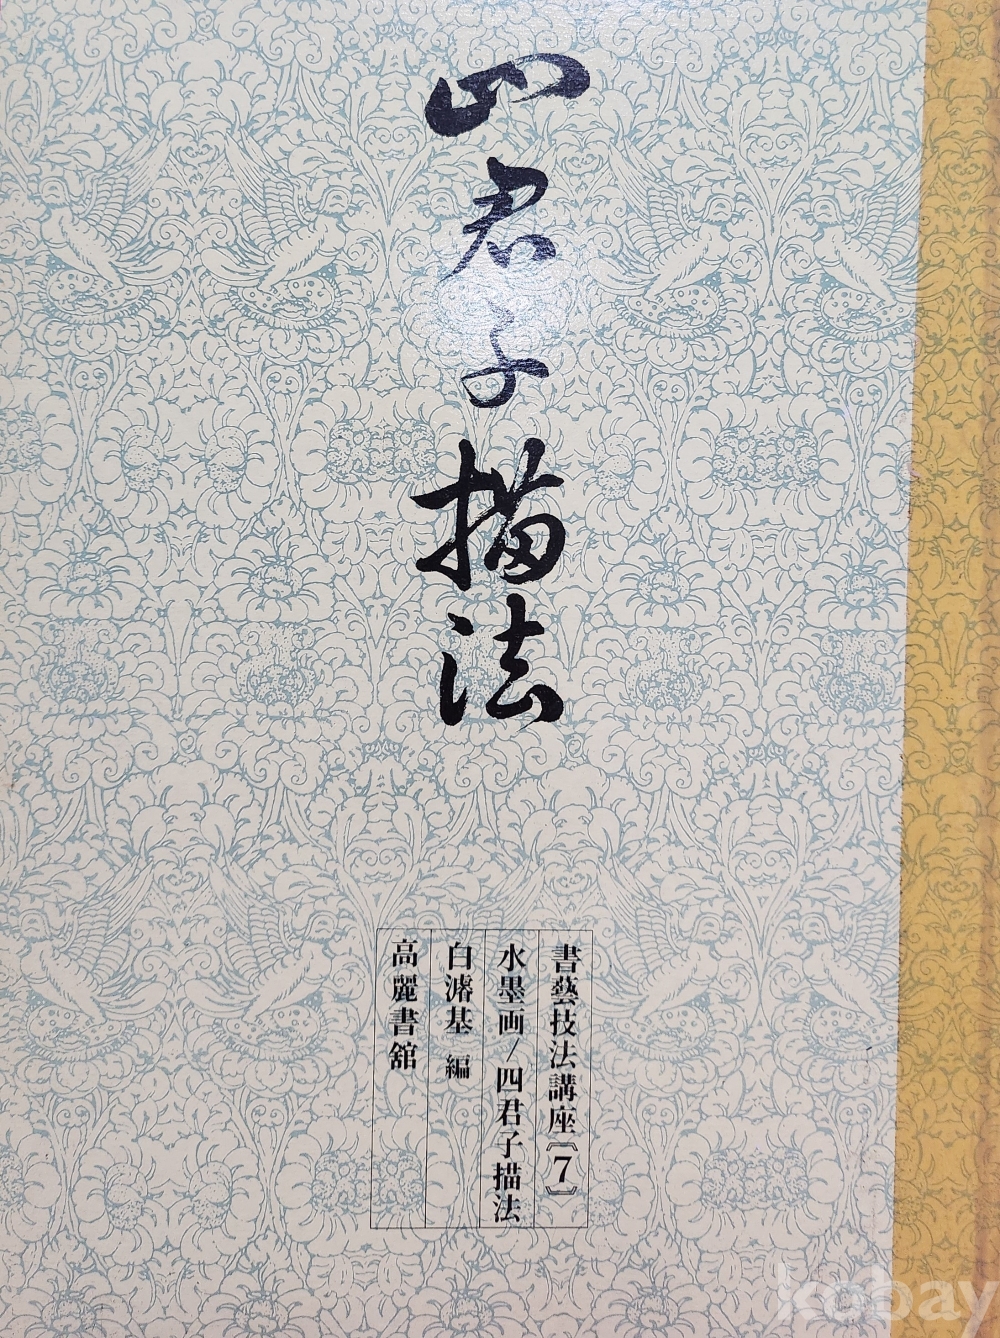 四君子描法
書藝技法講座〔7〕
水墨画/四君子描法
白濬基 編
高麗書舘
kobay